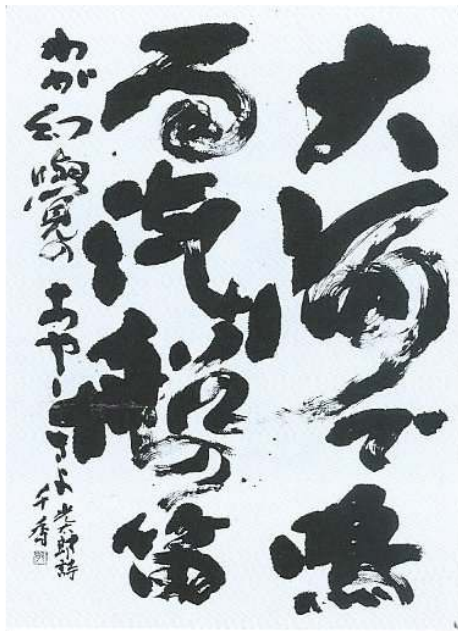 大海で鳴
る汽船の笛
わが幻聴覚のあやしさよ
光太郎詩
千香